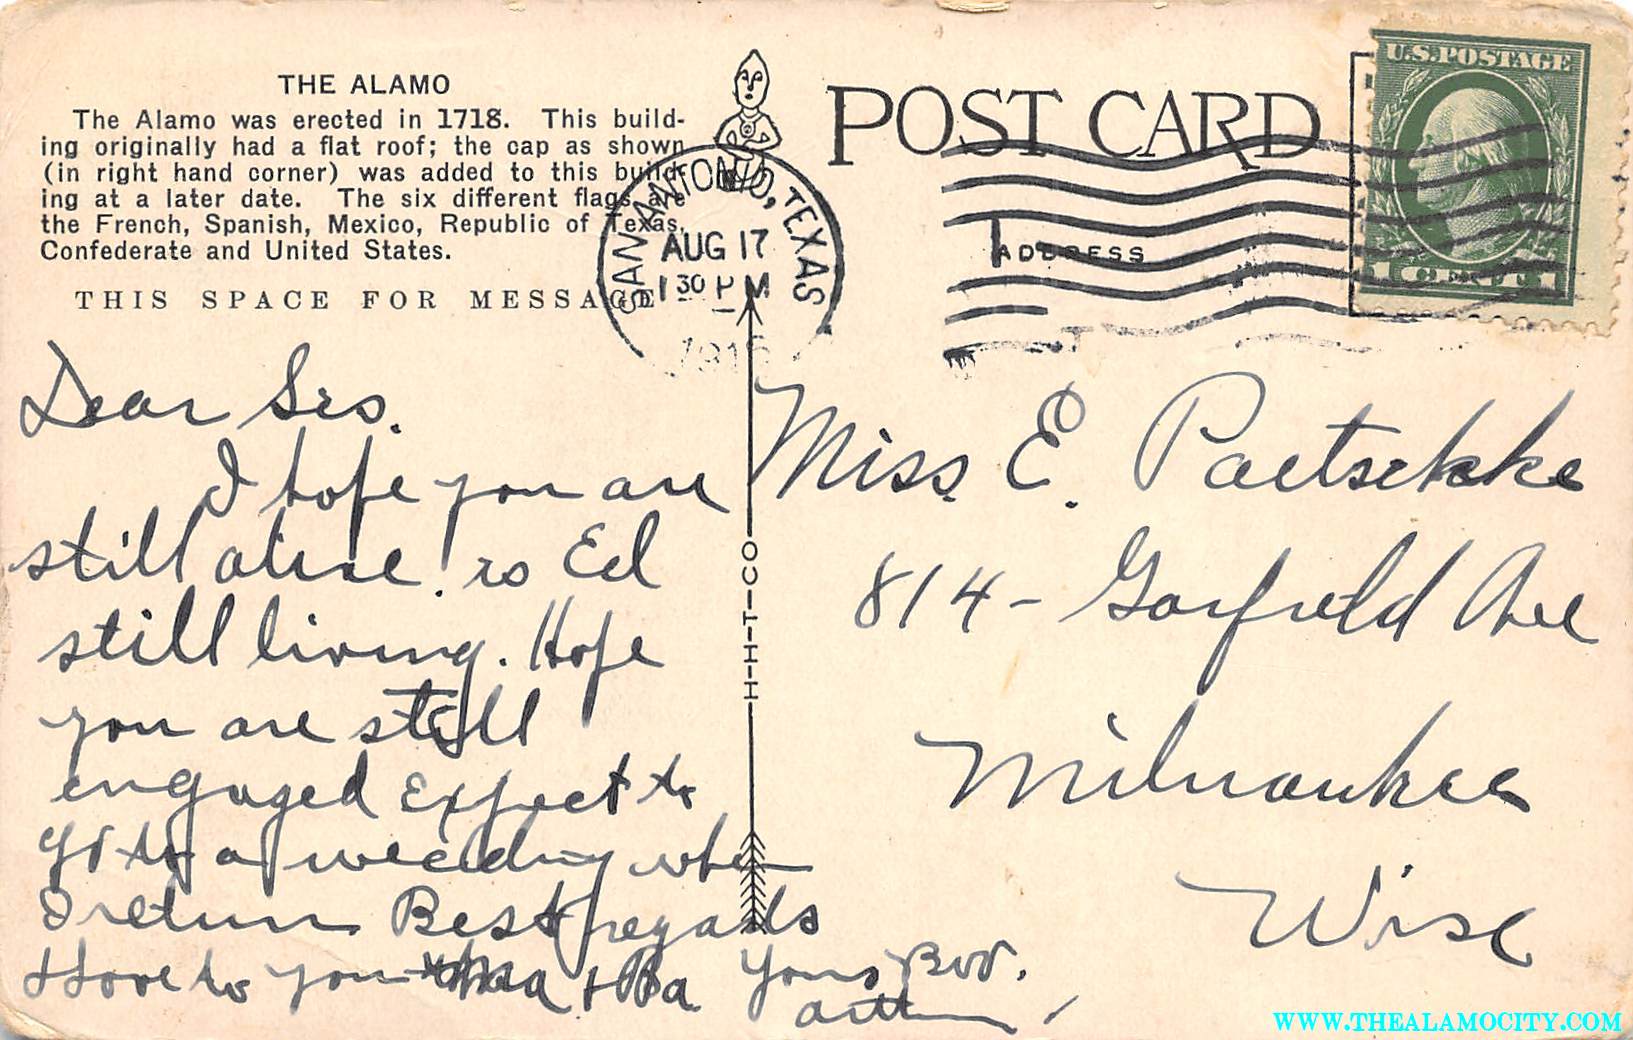 THE ALAMO
The Alamo was erected in 1718. This build-
ing originally had a flat roof; the cap as shown
(in right hand corner) was added to this build-
ing at a later date. The six different flags are
the French, Spanish, Mexico, Republic of Texas,
Confederate and United States.
THIS SPACE FOR MESSAGE
SAN ANTONIO, TEXAS
AUG 17
1 30 PM
POST CARD
ADDRESS
U.S. POSTAGE
1 CENT 1
H-H-T-CO
Dear Sis.
I hope you are
still alive. is Ed
still living. Hope
you are still
engaged Expect to
go to a wedding when
I return Best regards
& love to you Ma & Pa
Yours Bro.
Arthur
Miss E. Paetschke
814 - Garfield Ave
Milwaukee
Wisc
WWW.THEALAMOCITY.COM